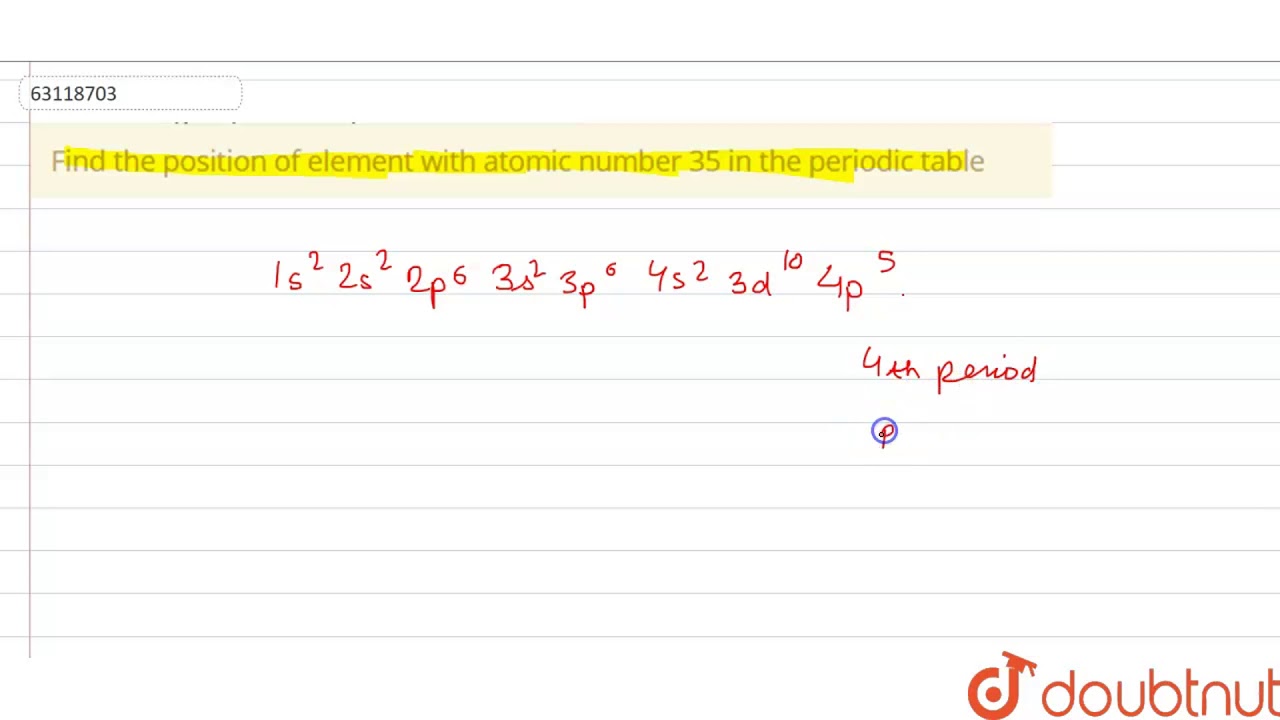 63118703
Find the position of element with atomic number 35 in the periodic table
1s² 2s² 2p⁶ 3s² 3p⁶ 4s² 3d¹⁰ 4p⁵.
4th period
p
doubtnut